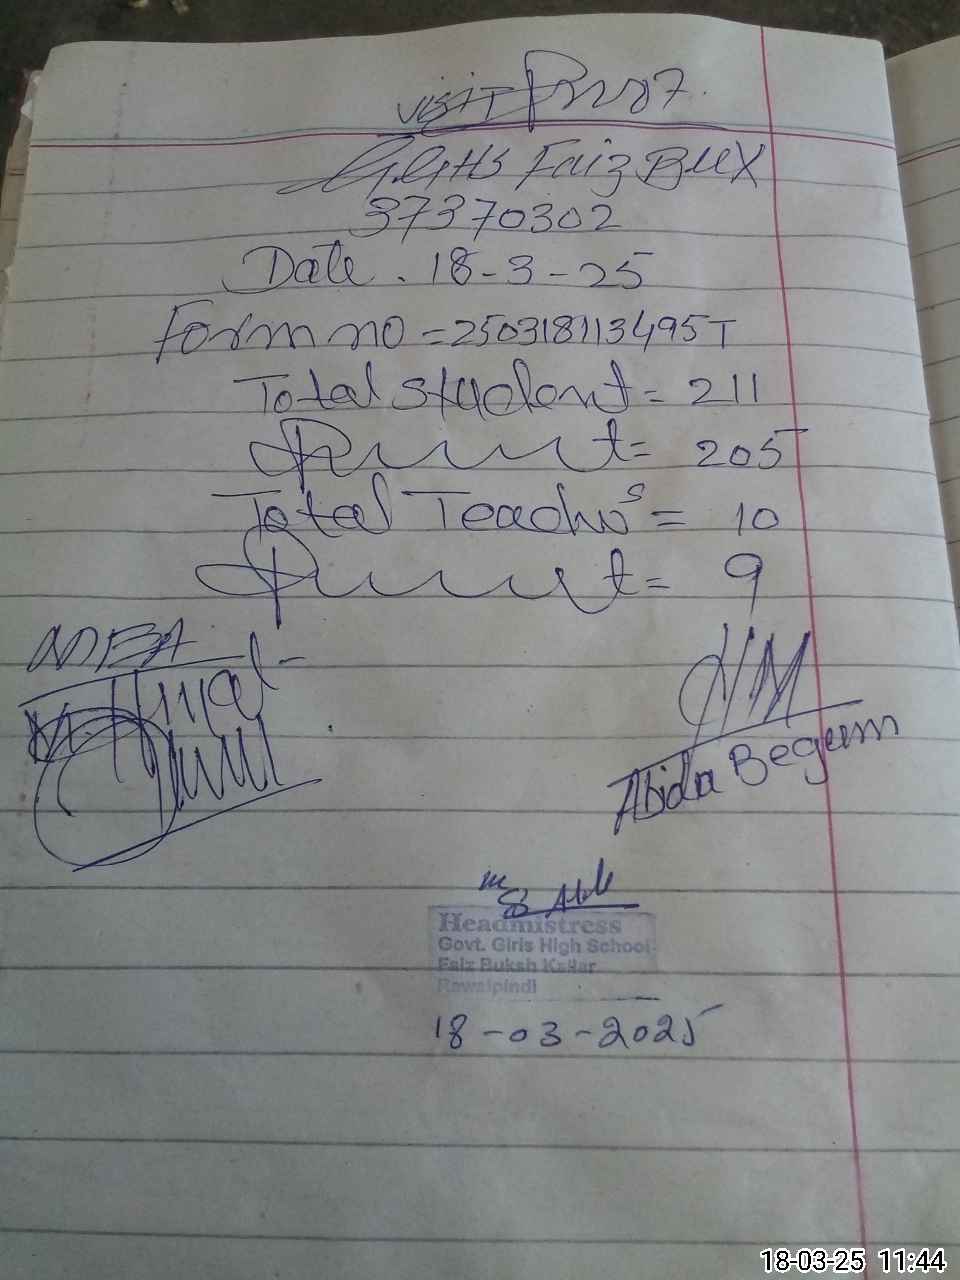 VISIT
GGHS Faiz Bux
37370302
Date . 18-3-25
Form no = 250318113495T
Total student = 211
= 205
Total Teachers = 10
= 9
HM
Abida Begum
Headmistress
Govt. Girls High School
Faiz Buksh Kallar
Rawalpindi
18-03-2025
18-03-25 11:44